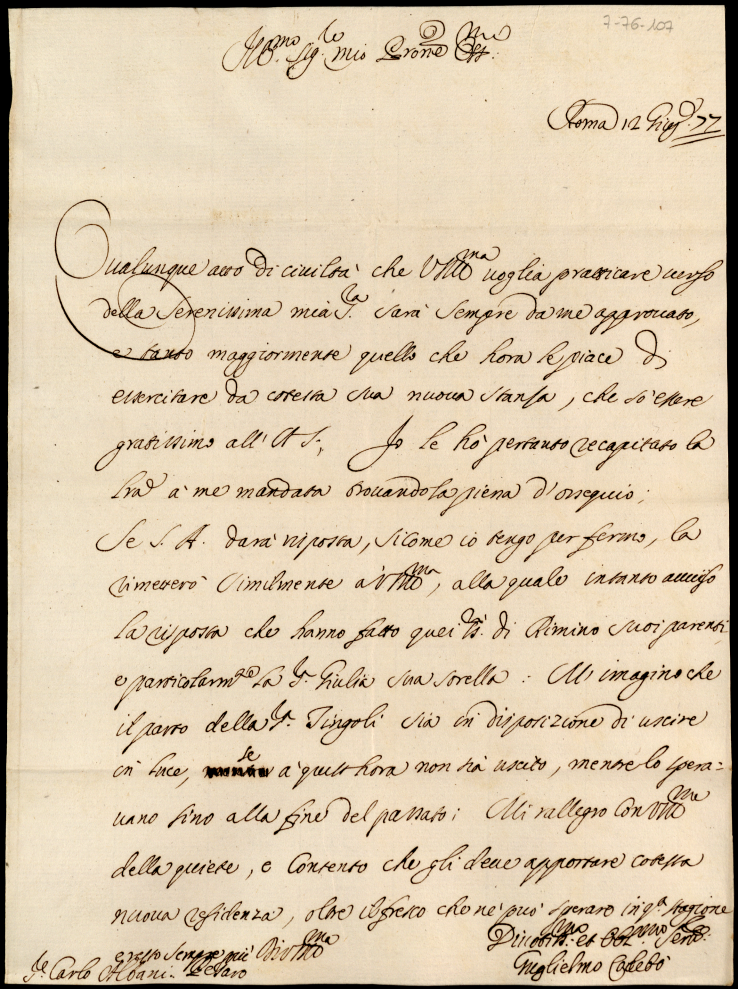 7-76-107
Ill.mo Sig.re mio Prone Oss.mo
Roma 12 Giug.o 77
Qualunque atto di civiltà che VSIll.ma voglia pratticare verso
della Serenissima mia S.ra sarà sempre da me approvato,
e tanto maggiormente quello che hora le piace di
essercitare da cotesta sua nuova stanza, che so essere
gratissimo all'A S.; Io le ho pertanto recapitato la
l'ra à me mandata trovandola piena d'ossequio;
Se S. A. darà risposta, sicome io tengo per fermo, la
rimetterò similmente à VSIll.ma, alla quale intanto avviso
la risposta che hanno fatto quei SS.ri di Rimino suoi parenti,
e particolarm.te la S.ra Giulia sua sorella: Mi imagino che
il parto della S.ra Tingoli sia in dispositione di uscire
in luce, se à quest'hora non sia uscito, mentre lo spera=
vano sino alla fine del passato; Mi rallegro con VSIll.ma
della quiete, e contento che gli deve apportare cotesta
nuova residenza, oltre il fresco che ne può sperare in q.ta stagione
e resto sempre più Di VSIll.ma
S.r Carlo Albani. Pesaro
Di.mo et Obl.mo Serv.
Guglielmo